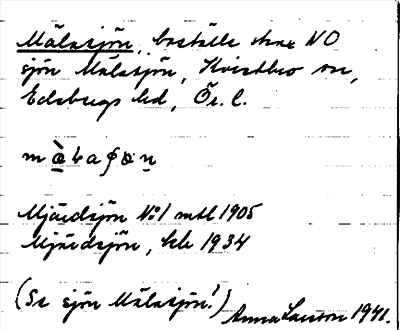 Mälasjön, boställe vid NO
sjön Mälasjön, Kvistbro sn,
Edsbergs hd, Ör. l.
Mjärdsjön No 1 mtl 1905
Mjärdsjön, kk 1934
(Se sjön Mälasjön!) Anna Larsson 1941.